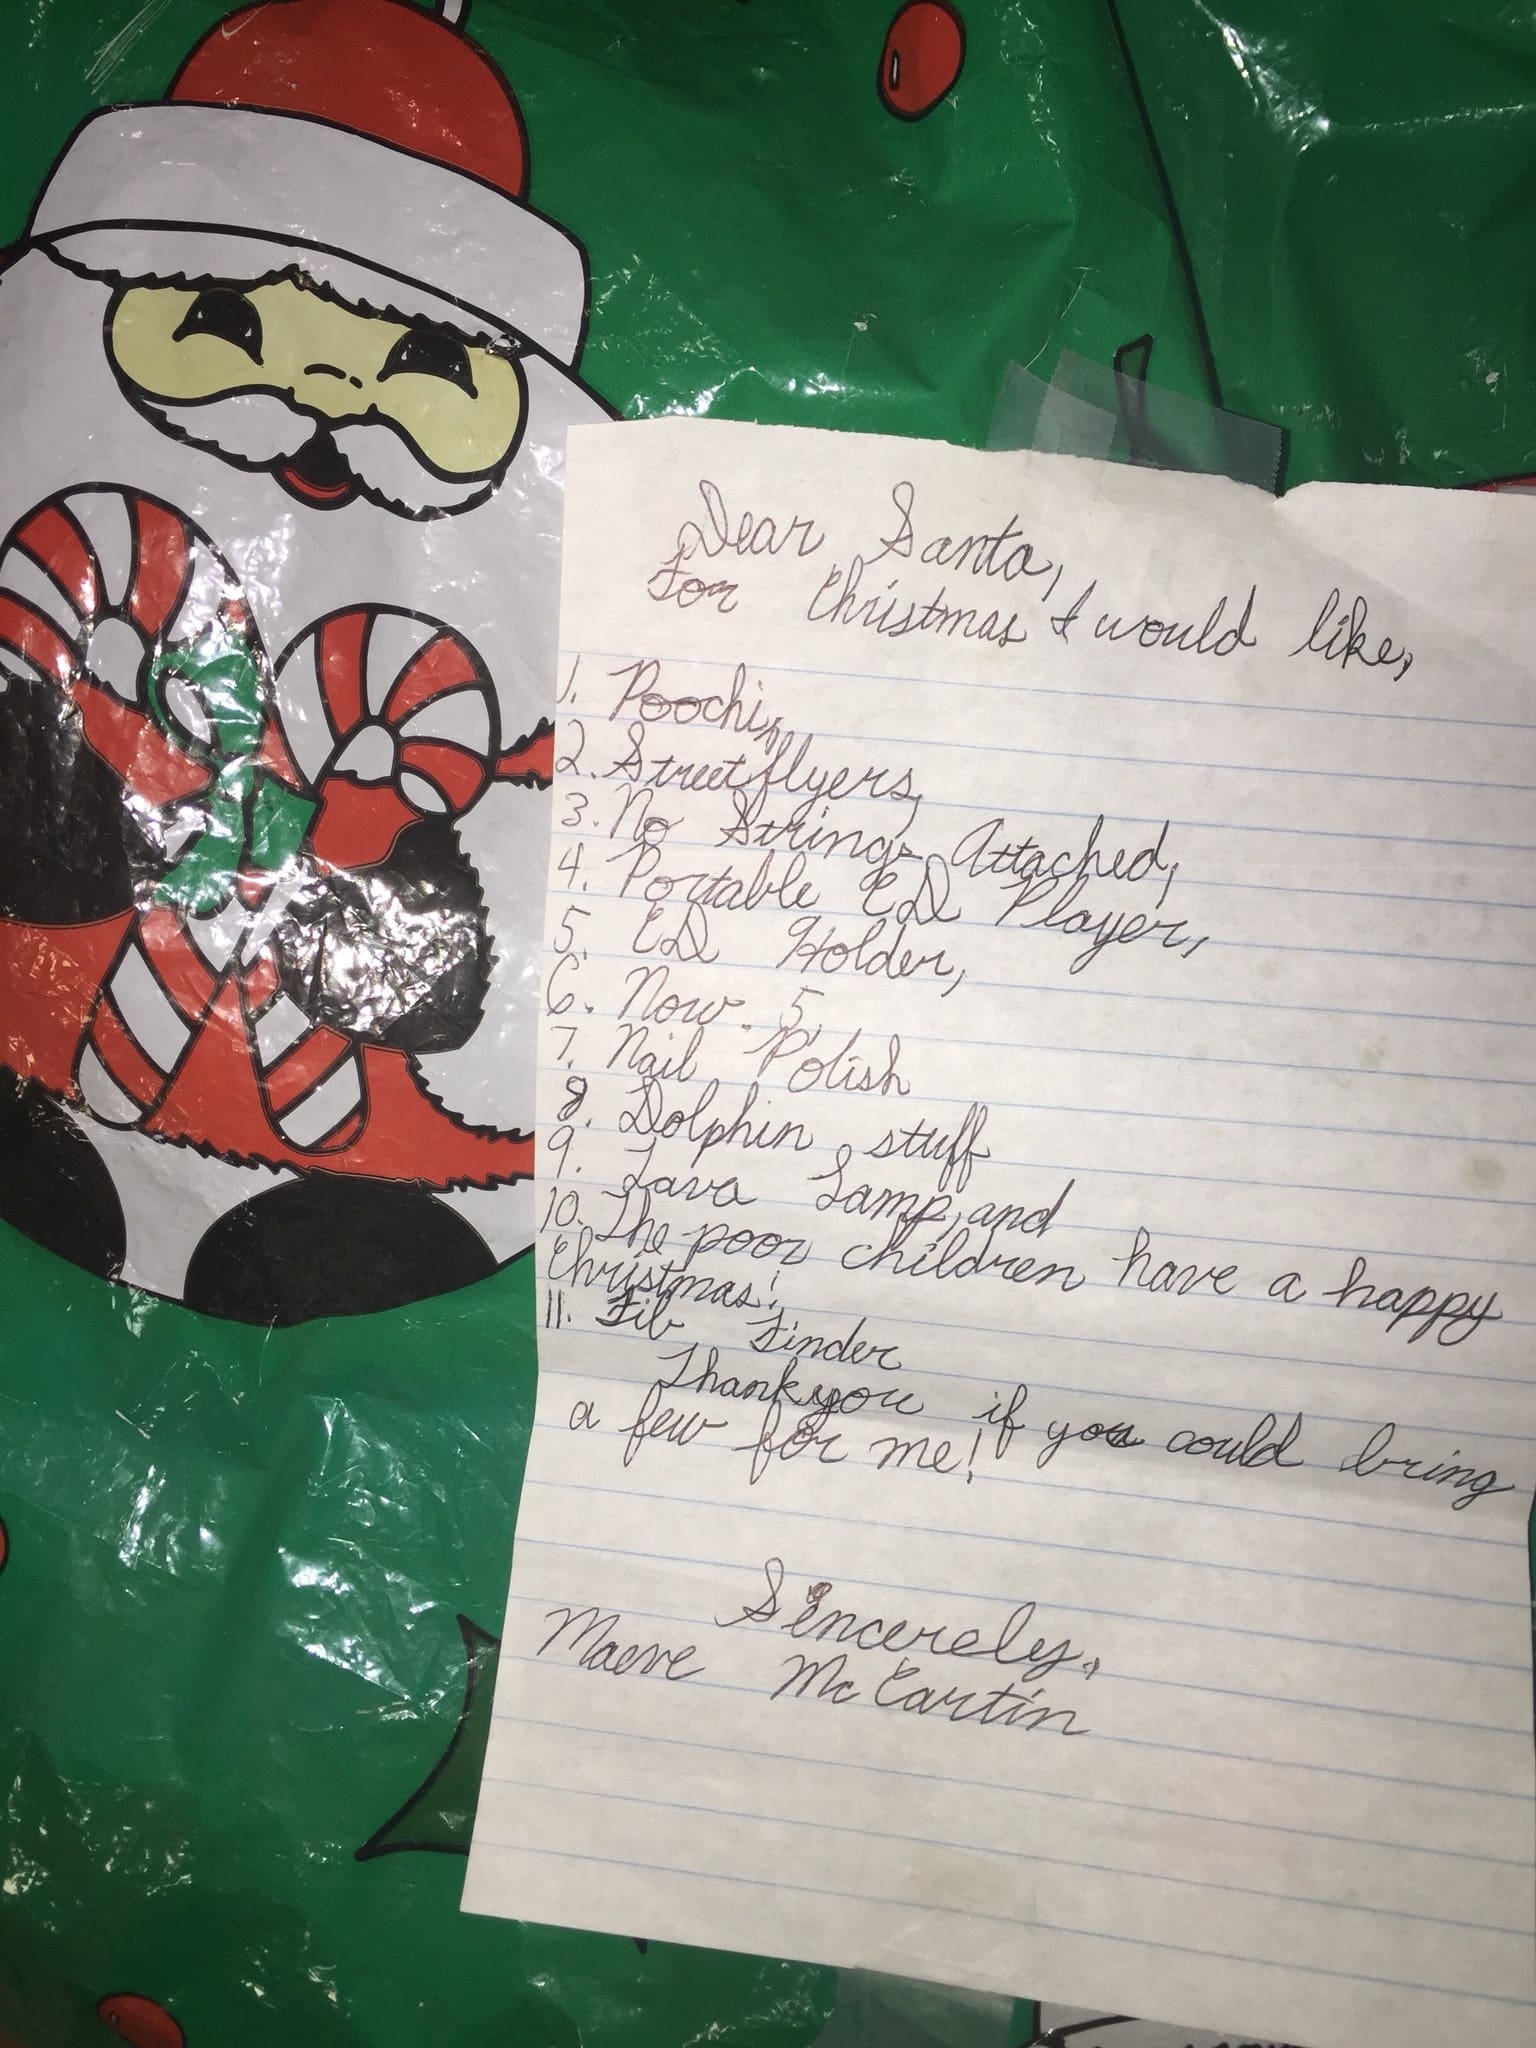 Dear Santa,
For Christmas I would like,
1. Poochi,
2. Street flyers,
3. No Strings Attached,
4. Portable CD Player,
5. CD Holder,
6. Now. 5,
7. Nail Polish
8. Dolphin stuff
9. Lava Lamp, and
10. The poor children have a happy
Christmas!
11. Fib Finder
Thank you if you could bring
a few for me!
Sincerely,
Maeve McCartin